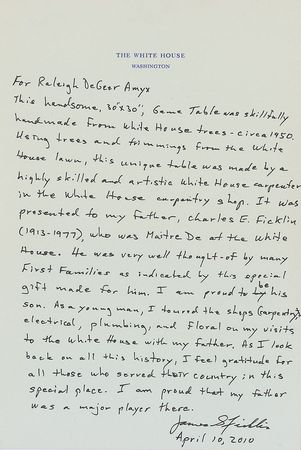 THE WHITE HOUSE
WASHINGTON
For Raleigh DeGeer Amyx
This handsome, 30"x30", Game Table was skillfully
handmade from White House trees-circa 1950.
Using trees and trimmings from the White
House lawn, this unique table was made by a
highly skilled and artistic White House carpenter
in the White House carpentry shop. It was
presented to my father, Charles E. Ficklin
(1913-1977), who was Maitre De at the White
House. He was very well thought-of by many
First Families as indicated by this special
gift made for him. I am proud to be his
son. As a young man, I toured the shops (carpentry,
electrical, plumbing, and floral on my visits
to the White House with my father. As I look
back on all this history, I feel gratitude for
all those who served their country in this
special place. I am proud that my father
was a major player there.
James S Ficklin
April 10, 2010